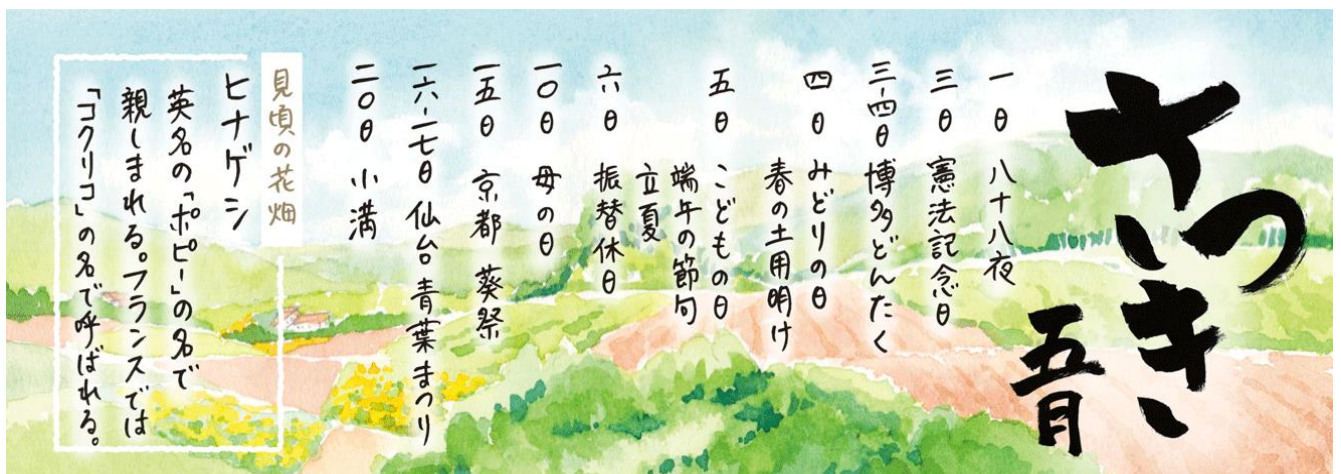 さつき
五月
一日 八十八夜
三日 憲法記念日
三-四日 博多どんたく
四日 みどりの日
春の土用明け
五日 こどもの日
端午の節句
立夏
六日 振替休日
一〇日 母の日
一五日 京都 葵祭
一六-一七日 仙台 青葉まつり
二〇日 小満
見頃の花畑
ヒナゲシ
英名の「ポピー」の名で
親しまれる。フランスでは
「コクリコ」の名で呼ばれる。